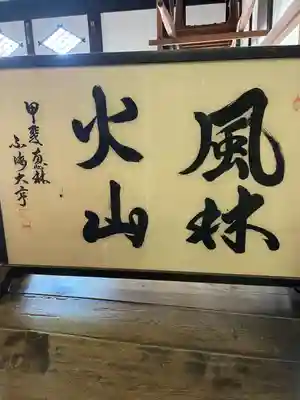 風林
火山
甲斐恵林